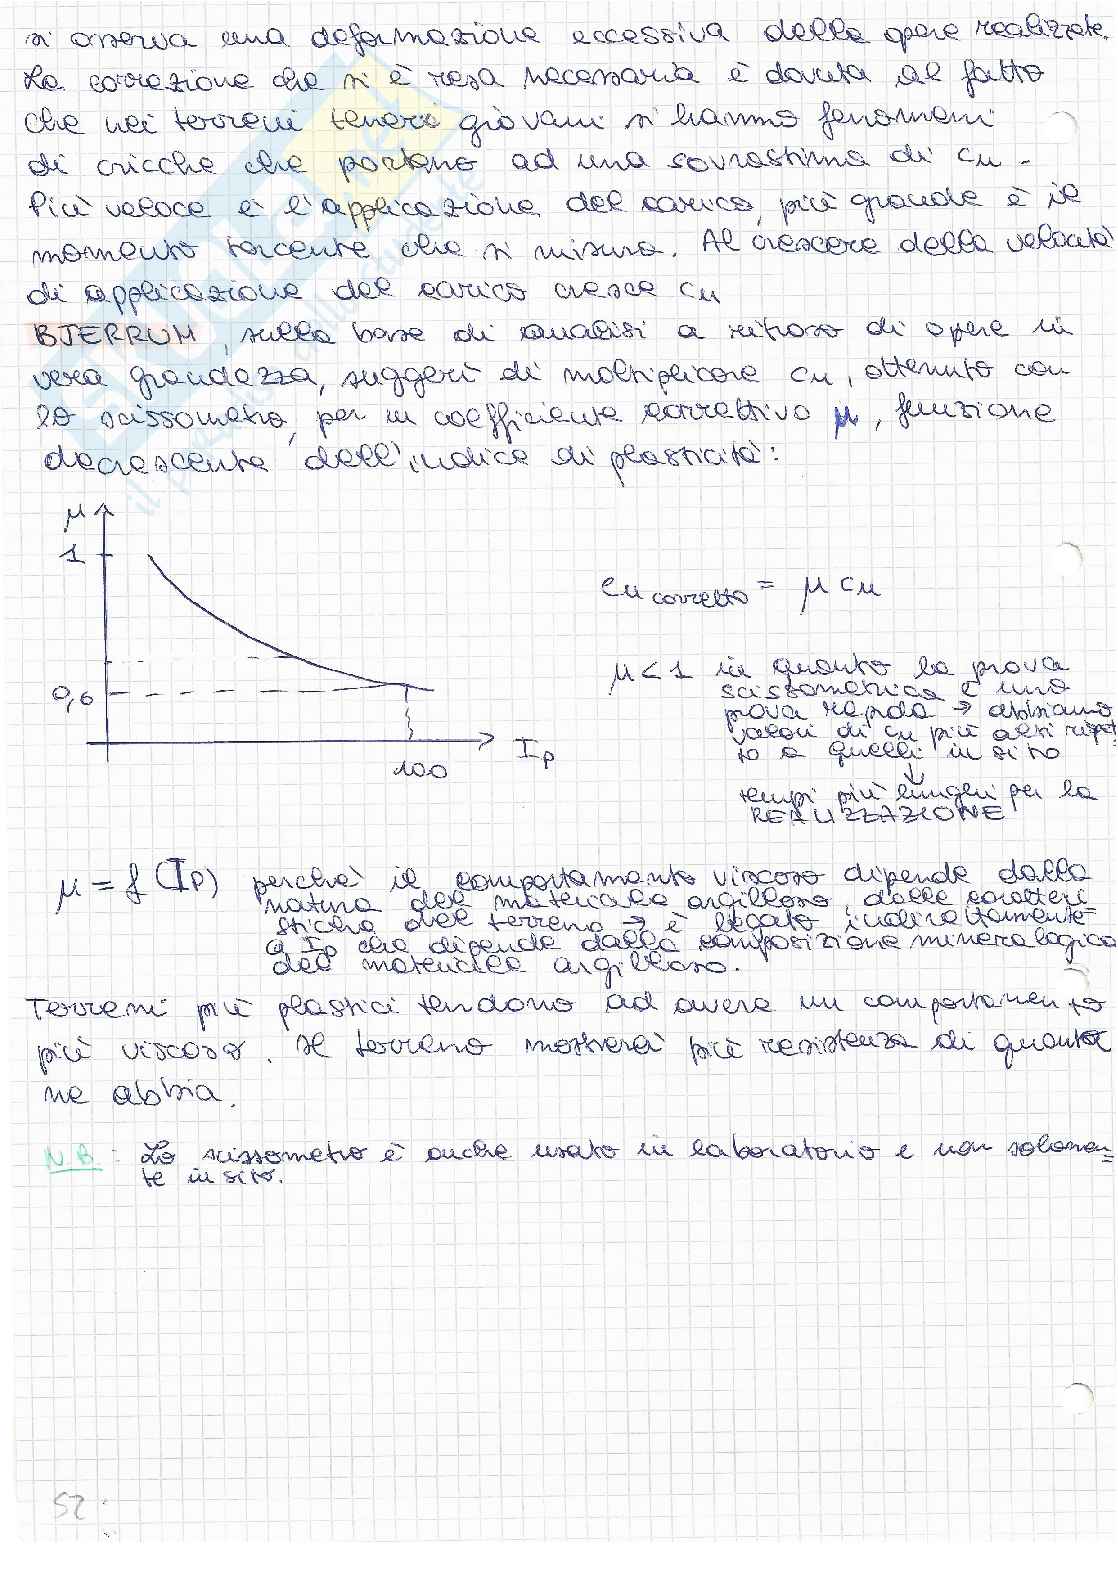 si osserva una deformazione eccessiva delle opere realizzate.
La correzione che si è resa necessaria è dovuta al fatto
che nei terreni teneri giovani si hanno fenomeni
di cricche che portano ad una sovrastima di cu.
Più veloce è l'applicazione del carico, più grande è il
momento torcente che si misura. Al crescere della velocità
di applicazione del carico cresce cu
BJERRUM, sulla base di analisi a ritroso di opere in
vera grandezza, suggerì di moltiplicare cu, ottenuto con
lo scissometro, per un coefficiente correttivo μ, funzione
decrescente dell'indice di plasticità:
μ
1
0,6
100
Ip
cu corretto = μ cu
μ < 1 in quanto la prova
scissometrica è una
prova rapida → abbiamo
valori di cu più alti rispet-
to a quelli in sito
↓
tempi più lunghi per la
REALIZZAZIONE
μ = f (Ip) perché il comportamento viscoso dipende dalla
natura del materiale argilloso, dalle caratteri
stiche del terreno → è legato indirettamente
a Ip che dipende dalla composizione mineralogica
del materiale argilloso.
Terreni più plastici tendono ad avere un comportamento
più viscoso. Il terreno mostrerà più resistenza di quanta
ne abbia.
N.B.: Lo scissometro è anche usato in laboratorio e non solamen=
te in sito.
52